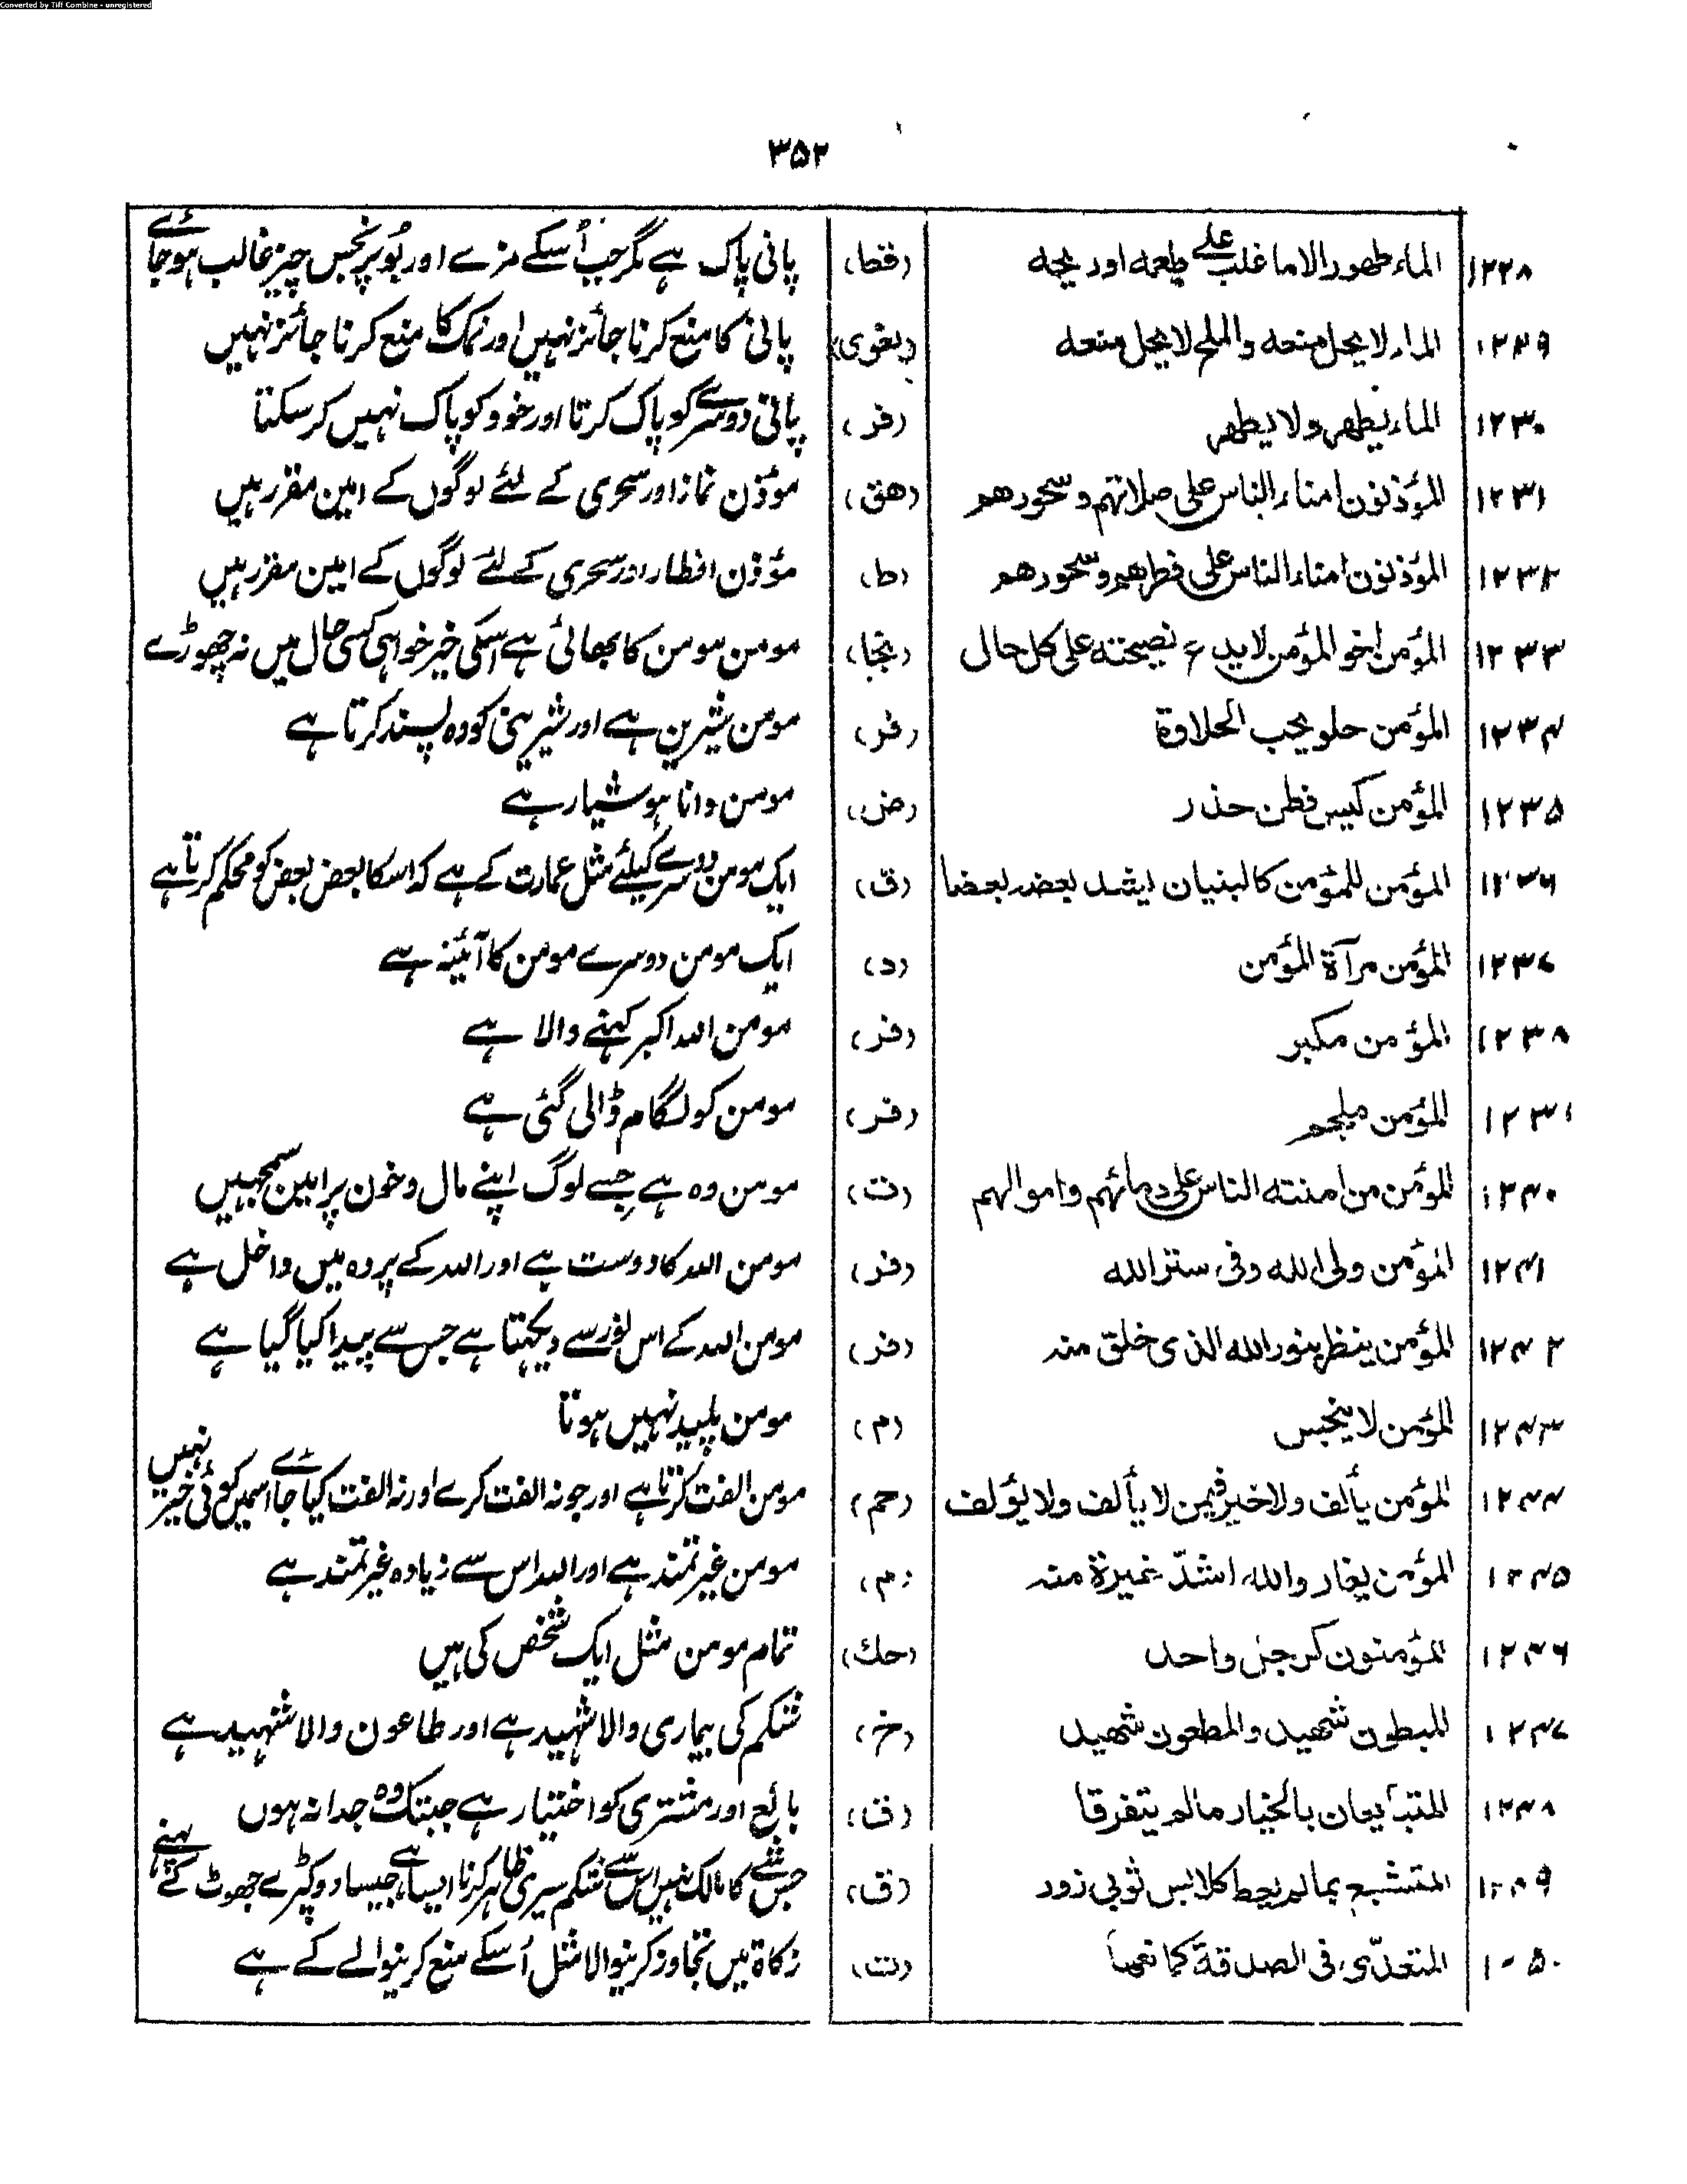 Converted by Tiff Combine - unregistered
۳۵۲
۱۲۲۸ الماء طهور الا ما غلب على طعمه او ريحه (قطا) پانی پاک ہے مگر جب اُسکے مزے اور بُو پر نجس چیز غالب ہو جائے
۱۲۲۹ الماء لا يحل منعه والملح لا يحل منعه (بغوی) پانی کا منع کرنا جائز نہیں اور نمک کا منع کرنا جائز نہیں
۱۲۳۰ الماء يطهر ولا يطهر (فر) پانی دوسرے کو پاک کرتا اور خود کو پاک نہیں کر سکتا
۱۲۳۱ المؤذنون امناء الناس على صلاتهم وسحورهم (هق) موذّن نماز اور سحری کے لئے لوگوں کے امین مقرر ہیں
۱۲۳۲ المؤذنون امناء الناس على فطرهم وسحورهم (ط) مؤذن افطار اور سحری کے لئے لوگوں کے امین مقرر ہیں
۱۲۳۳ المؤمن اخو المؤمن لا يدع نصيحته على كل حال (نجا) مومن مومن کا بھائی ہے اسکی خیر خواہی کسی حال میں نہ چھوڑے
۱۲۳۴ المؤمن حلو يحب الحلاوة (فر) مومن شیرین ہے اور شیرینی کو وہ پسند کرتا ہے
۱۲۳۵ المؤمن كيس فطن حذر (ض) مومن دانا ہوشیار ہے
۱۲۳۶ المؤمن للمؤمن كالبنيان يشد بعضه بعضا (ق) ایک مومن دوسرے کیلئے مثل عمارت کے ہے کہ اسکا بعض بعض کو محکم کرتا ہے
۱۲۳۷ المؤمن مرآة المؤمن (د) ایک مومن دوسرے مومن کا آئینہ ہے
۱۲۳۸ المؤمن مكبر (فر) مومن اللہ اکبر کہنے والا ہے
۱۲۳ المؤمن ملجم (فر) مومن کو لگام ڈالی گئی ہے
۱۲۴۰ المؤمن من امنته الناس على دمائهم واموالهم (ت) مومن وہ ہے جسے لوگ اپنے مال و خون پر امین سمجہیں
۱۲۴۱ المؤمن ولى الله وفى ستر الله (فر) مومن اللہ کا دوست ہے اور اللہ کے پردہ میں داخل ہے
۱۲۴۲ المؤمن ينظر بنور الله الذى خلق منه (فر) مومن اللہ کے اس نور سے دیکہتا ہے جس سے پیدا کیا گیا ہے
۱۲۴۳ المؤمن لا ينجس (م) مومن پلید نہیں ہوتا
۱۲۴۴ المؤمن يألف ولا خير فيمن لا يألف ولا يؤلف (حم) مومن الفت کرتا ہے اور جو نہ الفت کرے اور نہ الفت کیا جائے اسمیں کوئی خیر نہیں
۱۲۴۵ المؤمن يغار والله اشدّ غيرة منه (م) مومن غیرتمند ہے اور اللہ اس سے زیادہ غیرتمند ہے
۱۲۴۶ المؤمنون كرجل واحد (حك) تمام مومن مثل ایک شخص کی ہیں
۱۲۴۷ المبطون شهيد والمطعون شهيد (خ) شکم کی بیماری والا شہید ہے اور طاعون والا شہید ہے
۱۲۴۸ المتبايعان بالخيار مالم يتفرقا (ق) بائع اور مشتری کو اختیار ہے جبتک وہ جدا نہ ہوں
۱۲۴۹ المتشبع بما لم يعط كلابس ثوبي زور (ق) جس شے کا مالک نہیں اس سے شکم سیری ظاہر کرنا ایسا ہے جیسا دو کپڑے جھوٹ کے پہنے
۱۲۵۰ المتعدّى فى الصدقة كمانعها (ت) زکاۃ میں تجاوز کرنیوالا مثل اُسکے منع کرنیوالے کے ہے